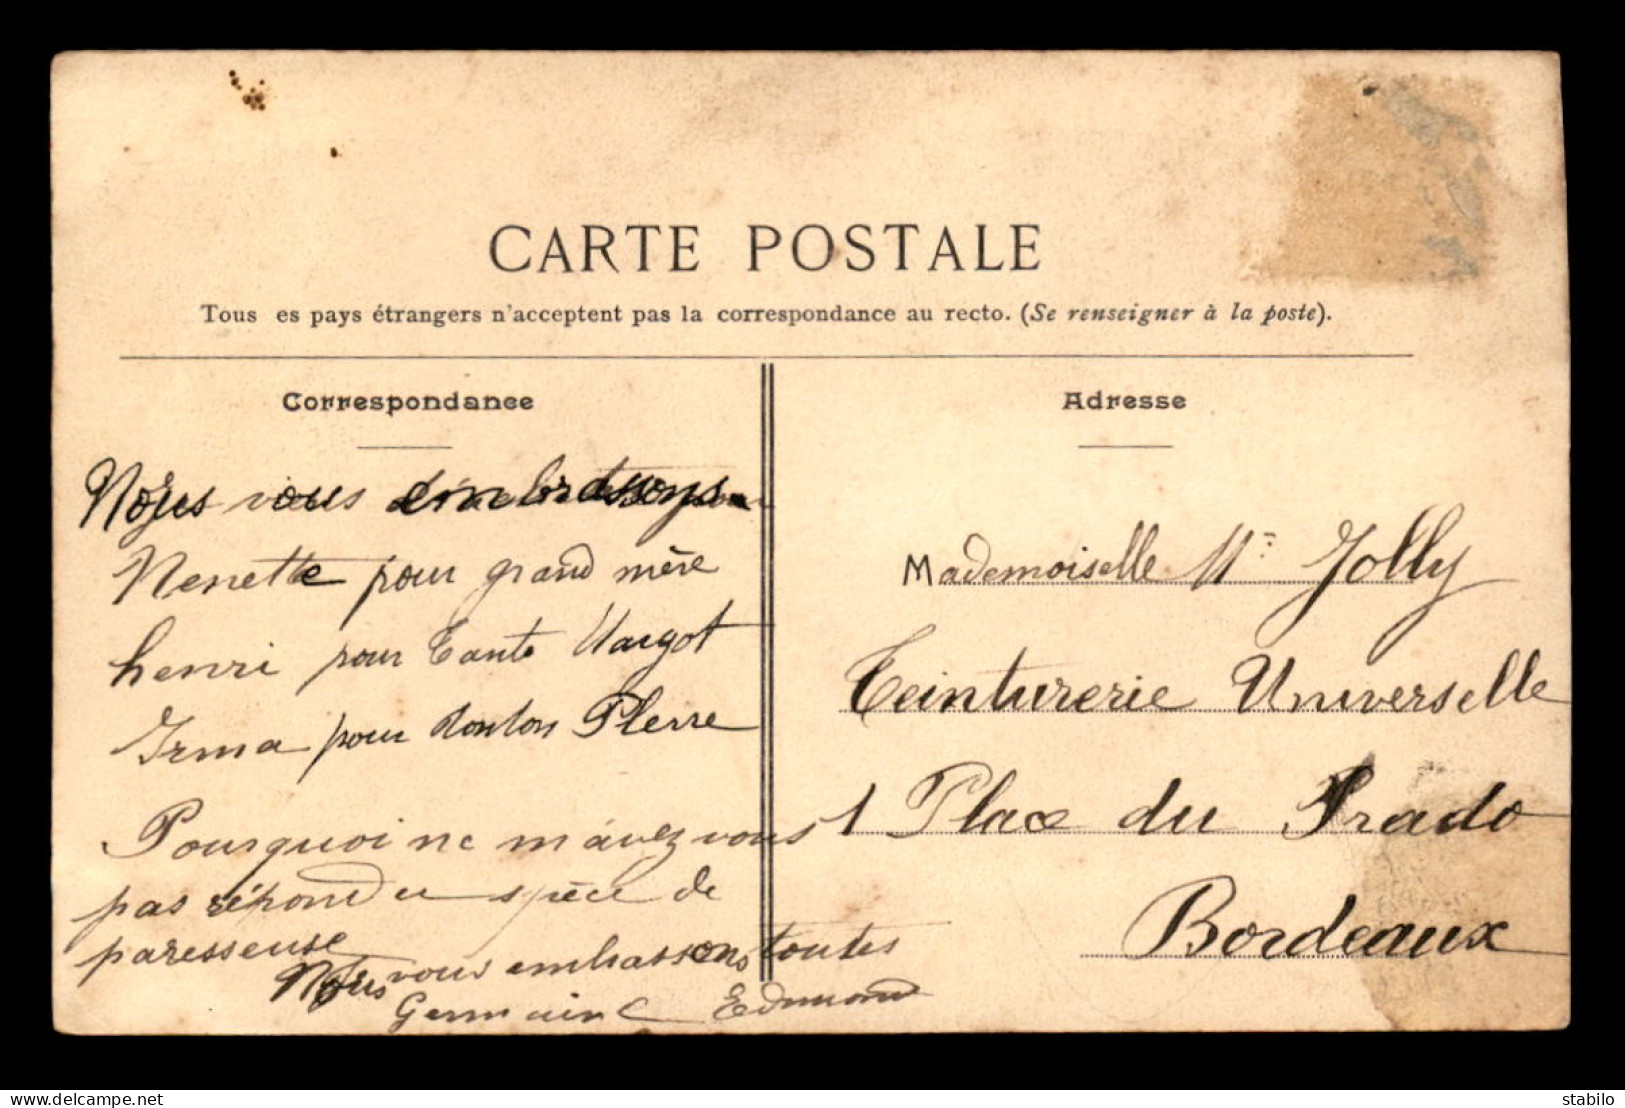 CARTE POSTALE
Tous es pays étrangers n'acceptent pas la correspondance au recto. (Se renseigner à la poste).
Correspondance
Nous vous embrassons
Nenette pour grand mère
henri pour Tante Margot
Irma pour tonton Pierre
Pourquoi ne m'avez vous
pas répondu espèce de
paresseuse
Nous vous embrassons toutes
Germaine Edmond
Adresse
Mademoiselle M. Jolly
Teinturerie Universelle
1 Place du Prado
Bordeaux
www.delcampe.net
stabilo